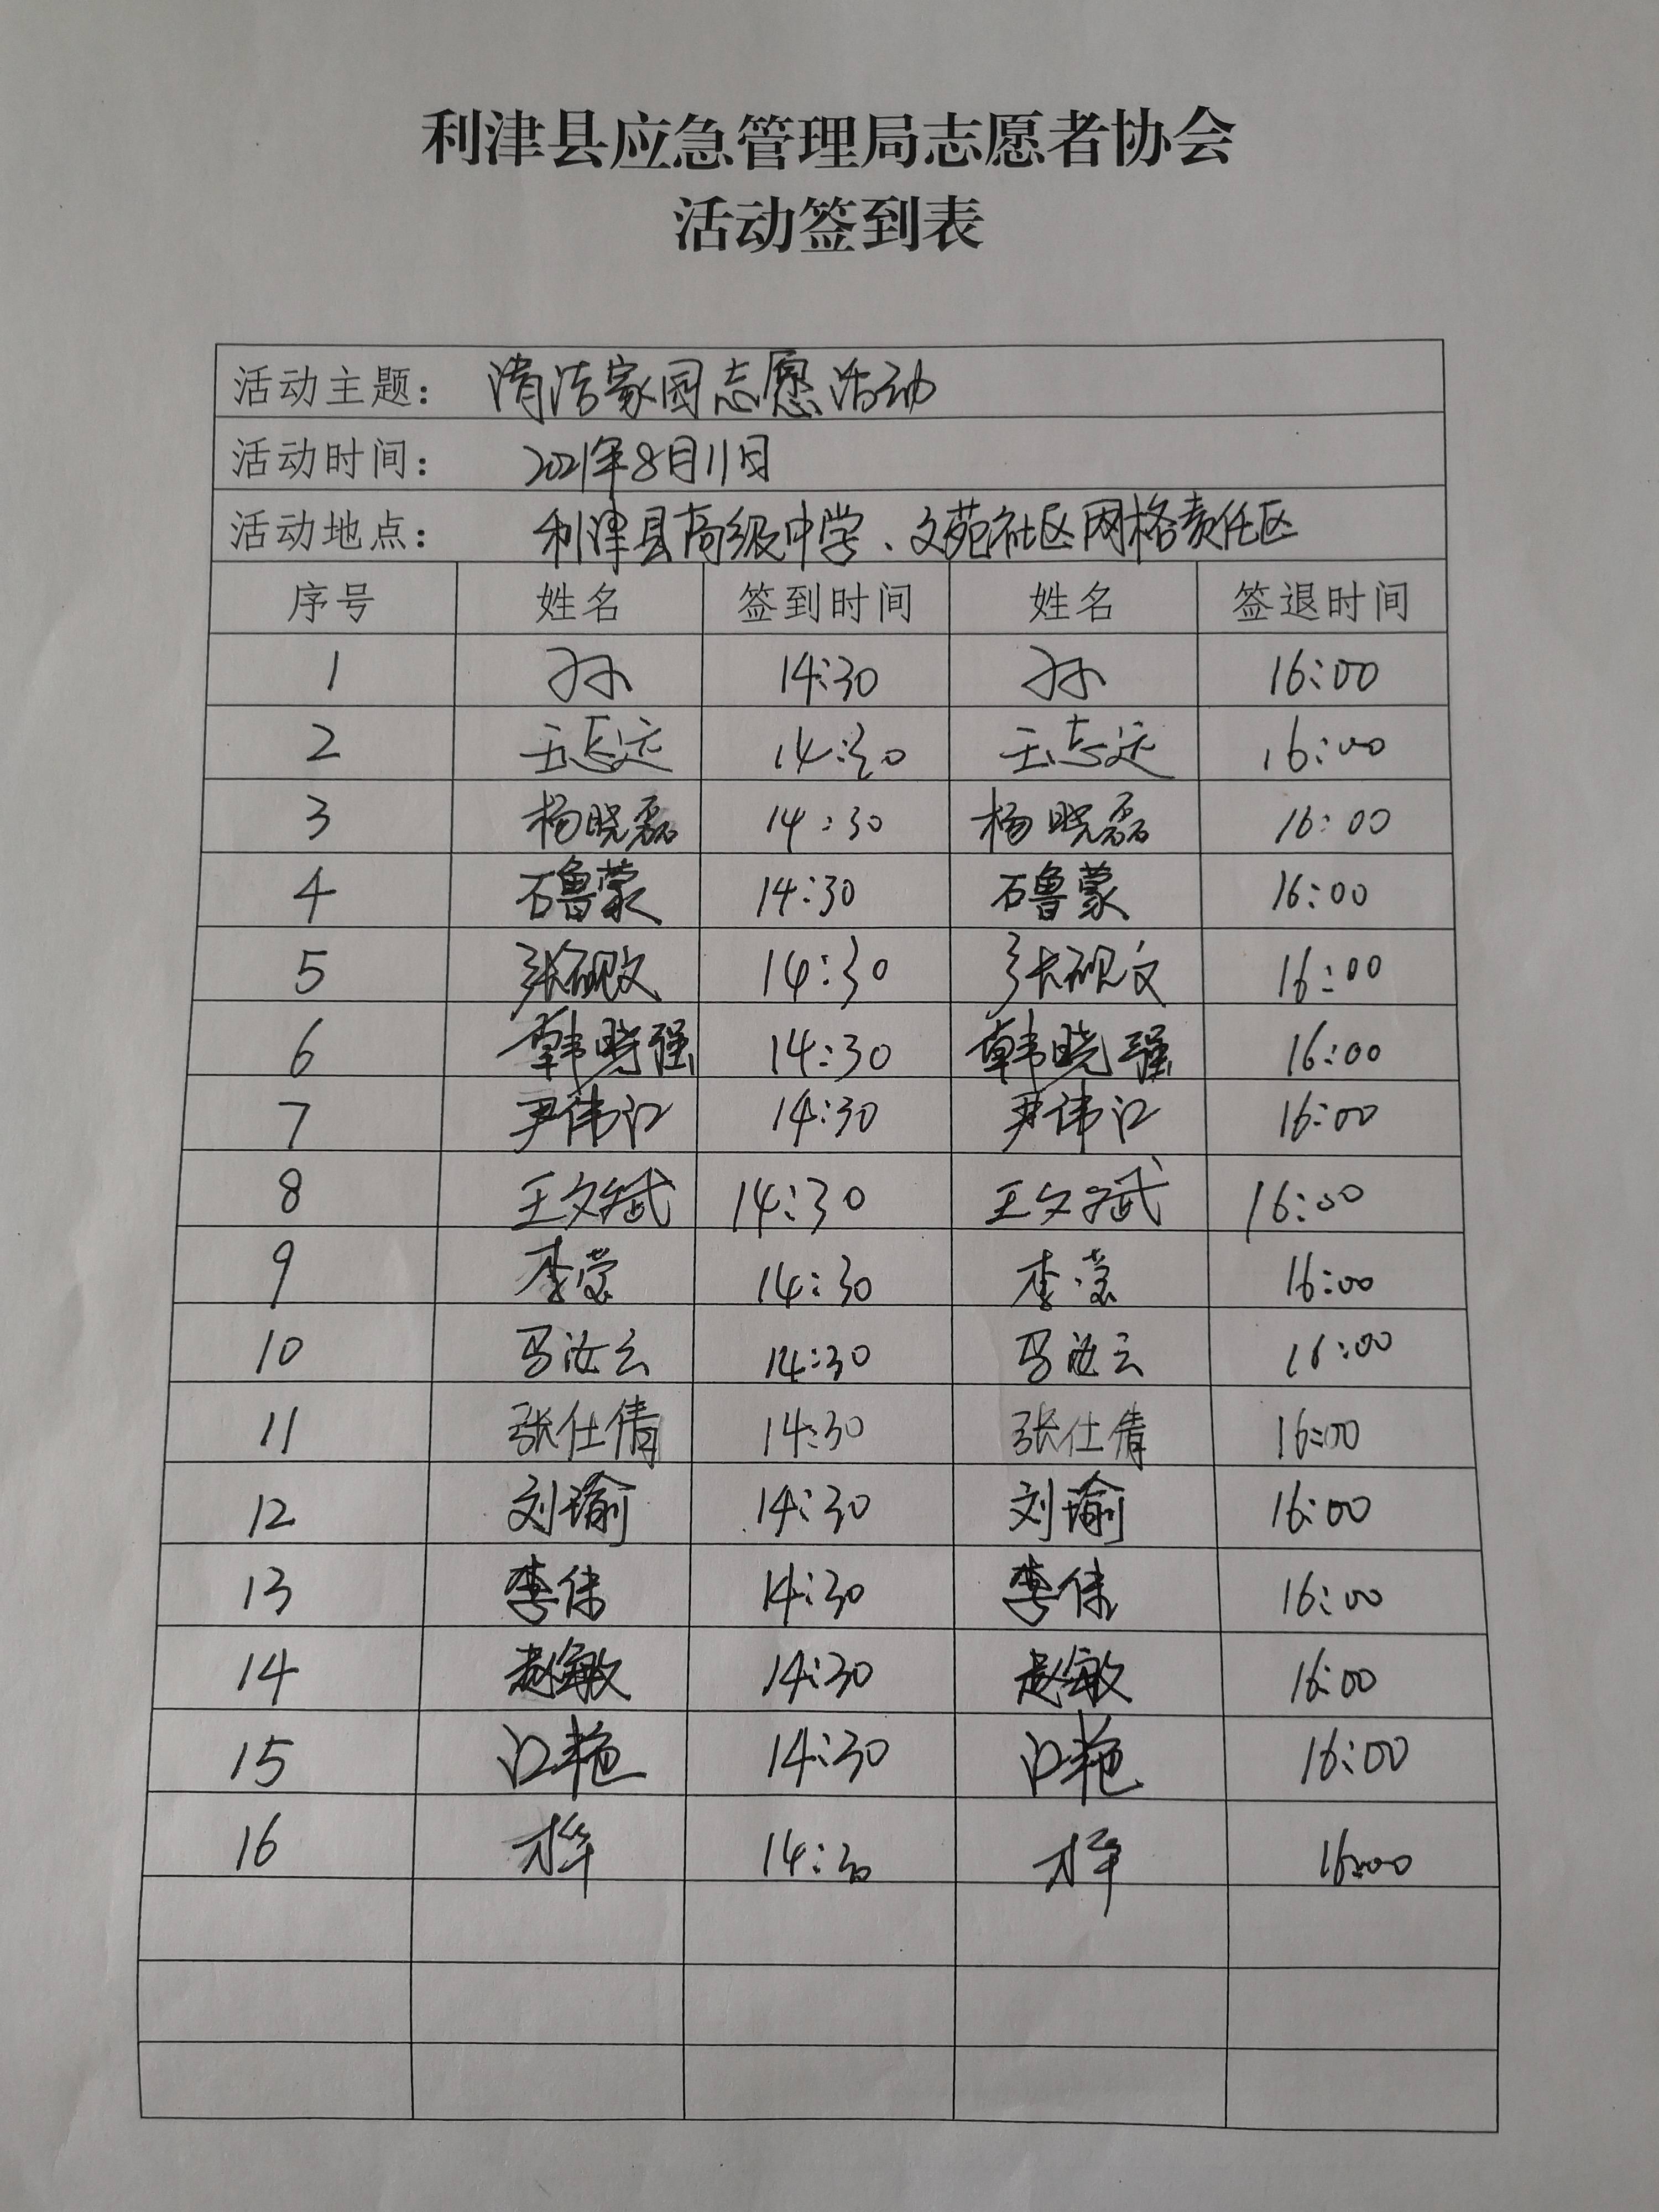 利津县应急管理局志愿者协会
活动签到表
活动主题： 清洁家园志愿活动
活动时间： 2021年8月11日
活动地点： 利津县高级中学、文苑社区网格责任区
序号 姓名 签到时间 姓名 签退时间
1 孙 14:30 孙 16:00
2 王志远 14:30 王志远 16:00
3 杨晓磊 14:30 杨晓磊 16:00
4 石鲁蒙 14:30 石鲁蒙 16:00
5 张砚文 14:30 张砚文 16:00
6 韩晓强 14:30 韩晓强 16:00
7 尹伟江 14:30 尹伟江 16:00
8 王文斌 14:30 王文斌 16:00
9 李莹 14:30 李莹 16:00
10 马汝云 14:30 马汝云 16:00
11 张仕倩 14:30 张仕倩 16:00
12 刘瑜 14:30 刘瑜 16:00
13 李伟 14:30 李伟 16:00
14 赵敏 14:30 赵敏 16:00
15 江艳 14:30 江艳 16:00
16 14:30 16:00